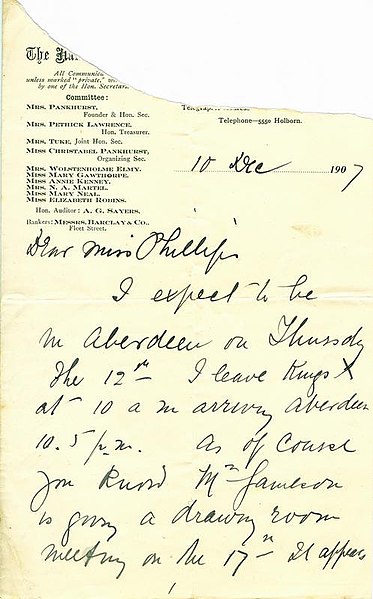 The Na
All Communica
unless marked "private,"
by one of the Hon. Secretar
Committee:
MRS. PANKHURST,
Founder & Hon. Sec.
MRS. PETHICK LAWRENCE,
Hon. Treasurer.
MRS. TUKE, Joint Hon. Sec.
MISS CHRISTABEL PANKHURST,
Organizing Sec.
MRS. WOLSTENHOLME ELMY.
MISS MARY GAWTHORPE.
MISS ANNIE KENNEY.
MRS. N. A. MARTEL.
MISS MARY NEAL.
MISS ELIZABETH ROBINS.
Hon. Auditor: A. G. SAYERS.
Bankers: MESSRS. BARCLAY & CO.,
Fleet Street.
Telephone—5550 Holborn.
10 Dec 1907
Dear Miss Phillips
I expect to be
in Aberdeen on Thursday
the 12th I leave Kings X
at 10 a m arriving Aberdeen
10.5 p.m. As of course
you know Mrs Jameson
is giving a drawing room
meeting on the 17th It appears